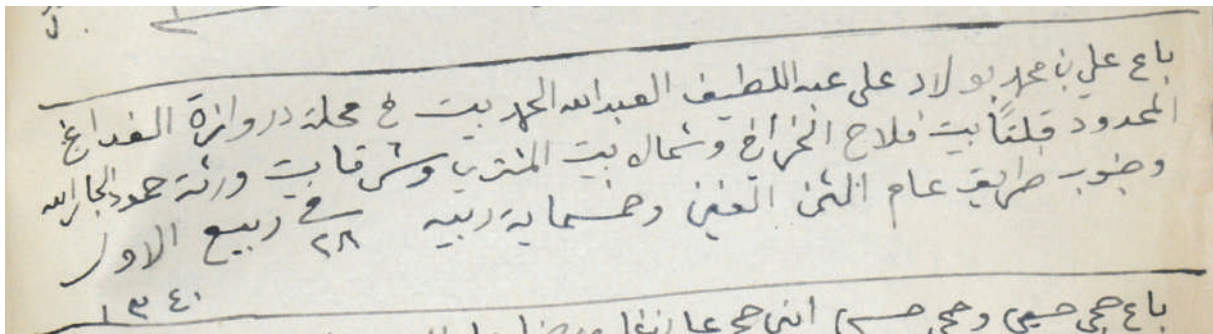 باع علي بن محمد بولاد على عبد اللطيف العبدالله الحمد بيت في محلة دروازة الفداغ
المحدود قبلتاً بيت فلاح الخرافي وشمالا بيت المشتري وشرقا بيت ورثة حمود الجارالله
وجنوب طريق عام الثمن الفين وخمسماية ربيه في ٢٨ ربيع الاول
١٣٤٠
باع حجي حسين وحجي